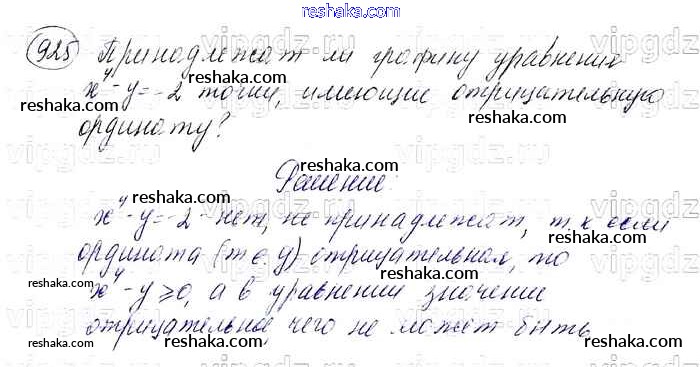 reshaka.com
925 Принадлежат ли графику уравнения
reshaka.com
reshaka.com
x⁴-y=-2 точки, имеющие отрицательную
reshaka.com
reshaka.com
ординату?
reshaka.com
Решение:
reshaka.com
reshaka.com
x⁴-y=-2 - нет, не принадлежат, т.к если
reshaka.com
ордината (т е y) отрицательная, то
reshaka.com
reshaka.com
x⁴-y≥0, а в уравнении значение
reshaka.com
отрицательное, чего не может быть
reshaka.com
reshaka.com
reshaka.com